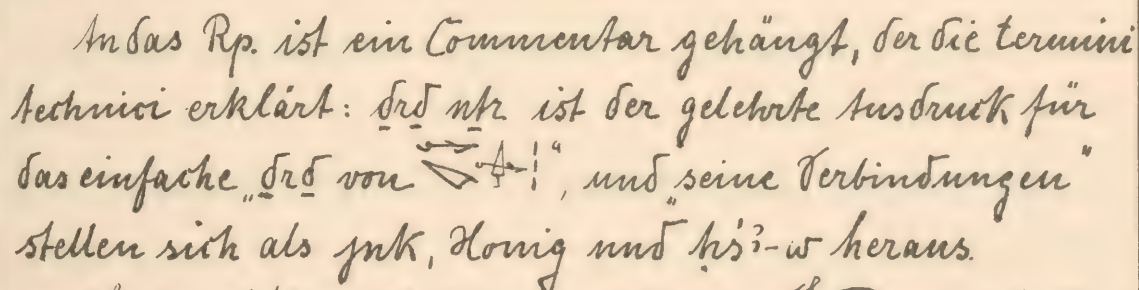 An das Rp. ist ein Commentar gehängt, der die termini
technici erklärt: ḏrḏ nṯr ist der gelehrte Ausdruck für
das einfache „ḏrḏ von “, und „seine Verbindungen“
stellen sich als jnk, Honig und ḥsꜣ-w heraus.